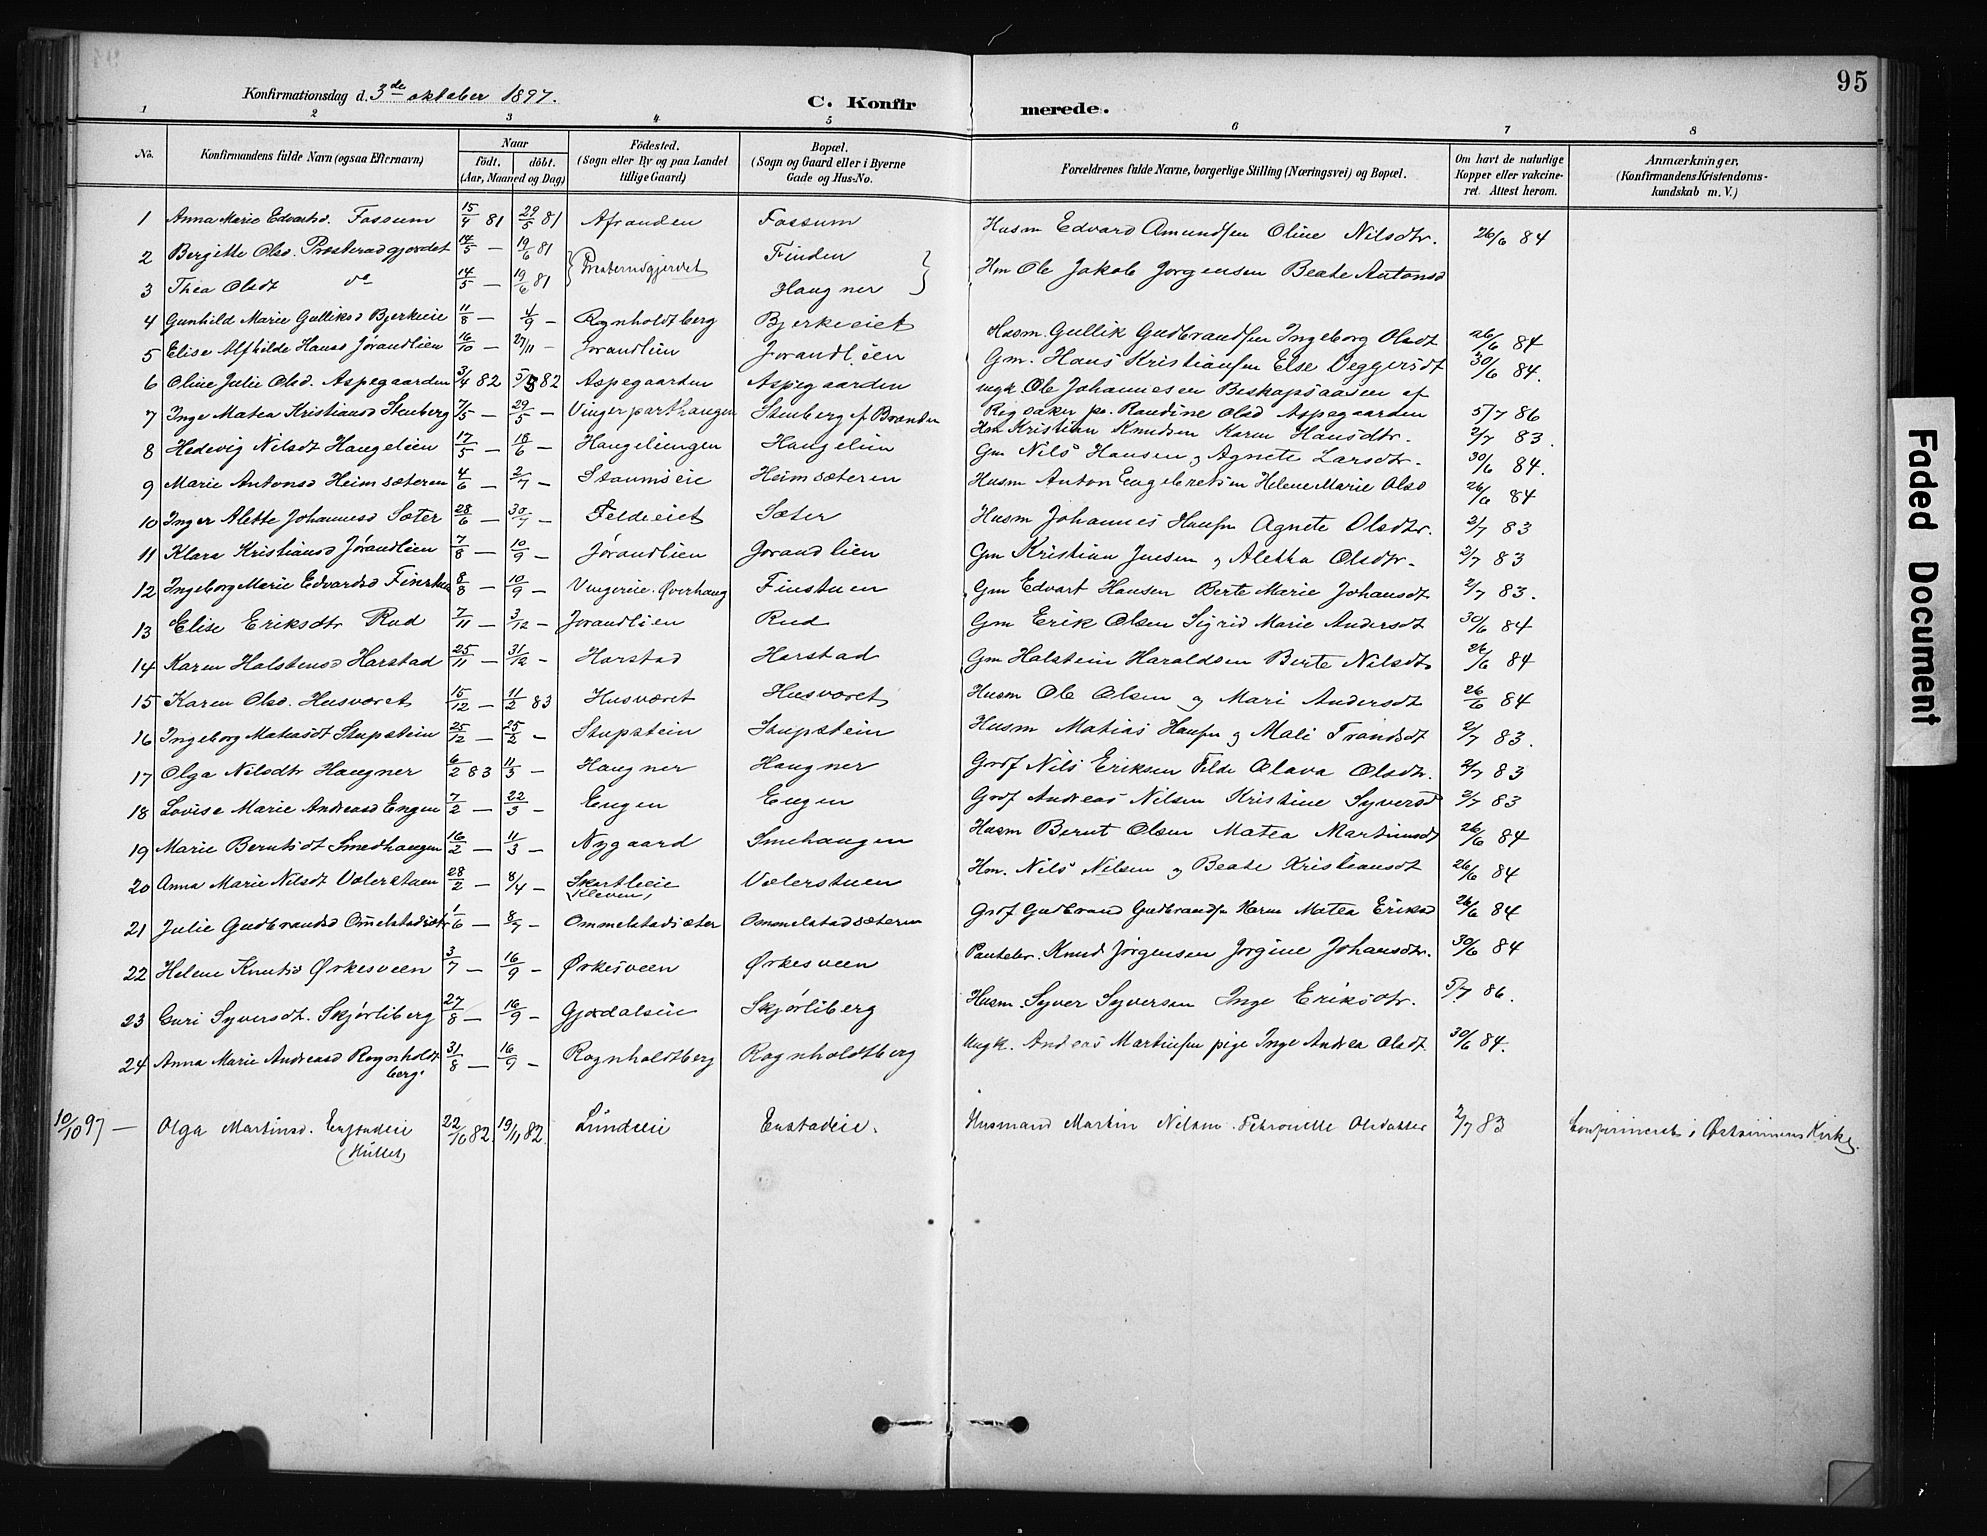 95
Konfirmationsdag d. 3de oktober 1897.
C. Konfirmerede.
1 2 3 4 5 6 7 8
No. Konfirmandens fulde Navn (ogsaa Efternavn) Naar födt. döbt. (Aar, Maaned og Dag) Födested. (Sogn eller By og paa Landet tillige Gaard) Bopæl. (Sogn og Gaard eller i Byerne Gade og Hus-No. Forældrenes fulde Navne, borgerlige Stilling (Næringsvei) og Bopæl. Om havt de naturlige Kopper eller vakcineret. Attest herom. Anmærkninger. (Konfirmandens Kristendomskundskab m. V.)
1 Anna Marie Edvartsd. Fossum 15/4 81 29/5 81 Afranden Fossum Husm Edvard Amundsen Oline Nilsdtr. 26/6 84
2 Bergitte Olsd. Presterudgjordet 14/5 — 19/6 81 Presterudgjerdet Finden Hm Ole Jakob Jorgensen Beate Antonsd
3 Thea Olsdt do 14/5 — 19/6 81 Haugner
4 Gunhild Marie Gulliksd Bjerkeie 11/8 — 4/9 — Rognholdtberg Bjerkeeiet Husm. Gullik Gudbrandsen Ingeborg Olsdt 26/6 84
5 Elise Alfhilde Hansd Jørandlien 16/10 — 27/11 — Jorandlien Jorandlien Gm. Hans Kristiansen Else Veggersdt 30/6 84.
6 Oline Julie Olsd. Aspegaarden 3/4 82 5/5 82 Aspegaarden Aspegaarden ungk. Ole Johannesen Beskapsaasen af
Ringsaker pe. Randine Olsd Aspegaarden 5/7 86
7 Inge Matea Kristiansd Stenberg 7/5 — 29/5 — Vingerparthaugen Stenberg f Branden Hm Kristian Knudsen Karen Hansdtr. 2/7 83.
8 Hedevig Nilsdt Haugelien 17/5 — 18/6 — Haugeliengen Haugelien Gm Nils Hansen og Agnete Larsdtr. 30/6 84.
9 Marie Antonsd Heimsæteren 4/6 — 2/7 — Staumseie Heimsæteren Husm Anton Engebretsen Helene Marie Olsd 26/6 84
10 Inger Alette Johannesd Sæter 28/6 — 30/7 — Feldeeiet Sæter Husm Johannes Hansen Agnete Olsdtr. 2/7 83
11 Klara Kristiansd Jørandlien 7/8 — 10/9 — Jørandlien Jorandlien Gm Kristian Jensen og Aletta Olsdtr. 2/7 83
12 Ingeborg Marie Edvardsd Finstuen 8/8 — 10/9 — Vingereie. Øverhaug Finstuen Gm Edvart Hansen Berte Marie Johansdt 2/7 83.
13 Elise Eriksdtr Rud 7/11 — 3/12 — Jorandlien Rud Gm Erik Olsen Sigrid Marie Andersdt 30/6 84
14 Karen Halstensd Harstad 25/11 — 31/12 — Harstad Harstad Gm Halstein Haraldsen Berte Nilsdt 26/6 84
15 Karen Olsd. Husværet 15/12 — 11/2 83 Husværet Husværet Husm Ole Olsen og Mari Andersdt 26/6 84
16 Ingeborg Matiasdt Stupstein 25/12 — 25/2 — Stupstein Stupstein Husm Matias Hansen og Mali Trondsdt 2/7 83.
17 Olga Nilsdtr Haugner 6/2 83 11/3 — Haugner Haugner Grdf Nils Eriksen Felde Olava Olsdtr. 2/7 83
18 Lovise Marie Andreasd Engen 7/2 — 22/3 — Engen Engen Grdf Andreas Nilsen Kristine Syversd 2/7 83
19 Marie Berntsdt Smedhaugen 16/2 — 11/3 — Nygaard Smehaugen Husm Bernt Olsen Matea Martinsdt 26/6 84
20 Anna Marie Nilsdt Volerstuen 28/2 — 8/4 — Skartlieie (Kleven) Vælerstuen Hm. Nils Nilsen og Beate Kristiansdt 26/6 84
21 Julie Gudbrandsd Ommelstadsætr 1/6 — 8/7 — Ommelstadsæter Ommelstadsæteren Grdf Gudbrand Gudbrandsen Karen Matea Eriksd 26/6 84
22 Helene Knutsd Ørkesveen 3/7 — 16/9 — Ørkesveen Ørkesveen Panteler. Knud Jörgensen Jorgine Johansdtr. 30/6 84
23 Guri Syversdt. Skjørliberg 27/8 — 16/9 — Gjødalseie Skjørliberg Husm. Syver Syversen Inge Eriksdtr. 5/7 86.
24 Anna Marie Andreasd Rognholdt
berg. 31/8 — 16/9 — Rognholdtberg Rognholdtberg Ungk. Anders Martinsen pige Inge Andrea Olsdt 30/6 84.
10/10 97 — Olga Martinsd. Enstadeie 22/10 82. 19/11 82. Lundeie Enstadeie. Husmand Martin Nilsen. Petronille Olsdatter 2/7 83 Confirmeret i Østsinnens Kirke.
(Hullet)
Faded Document